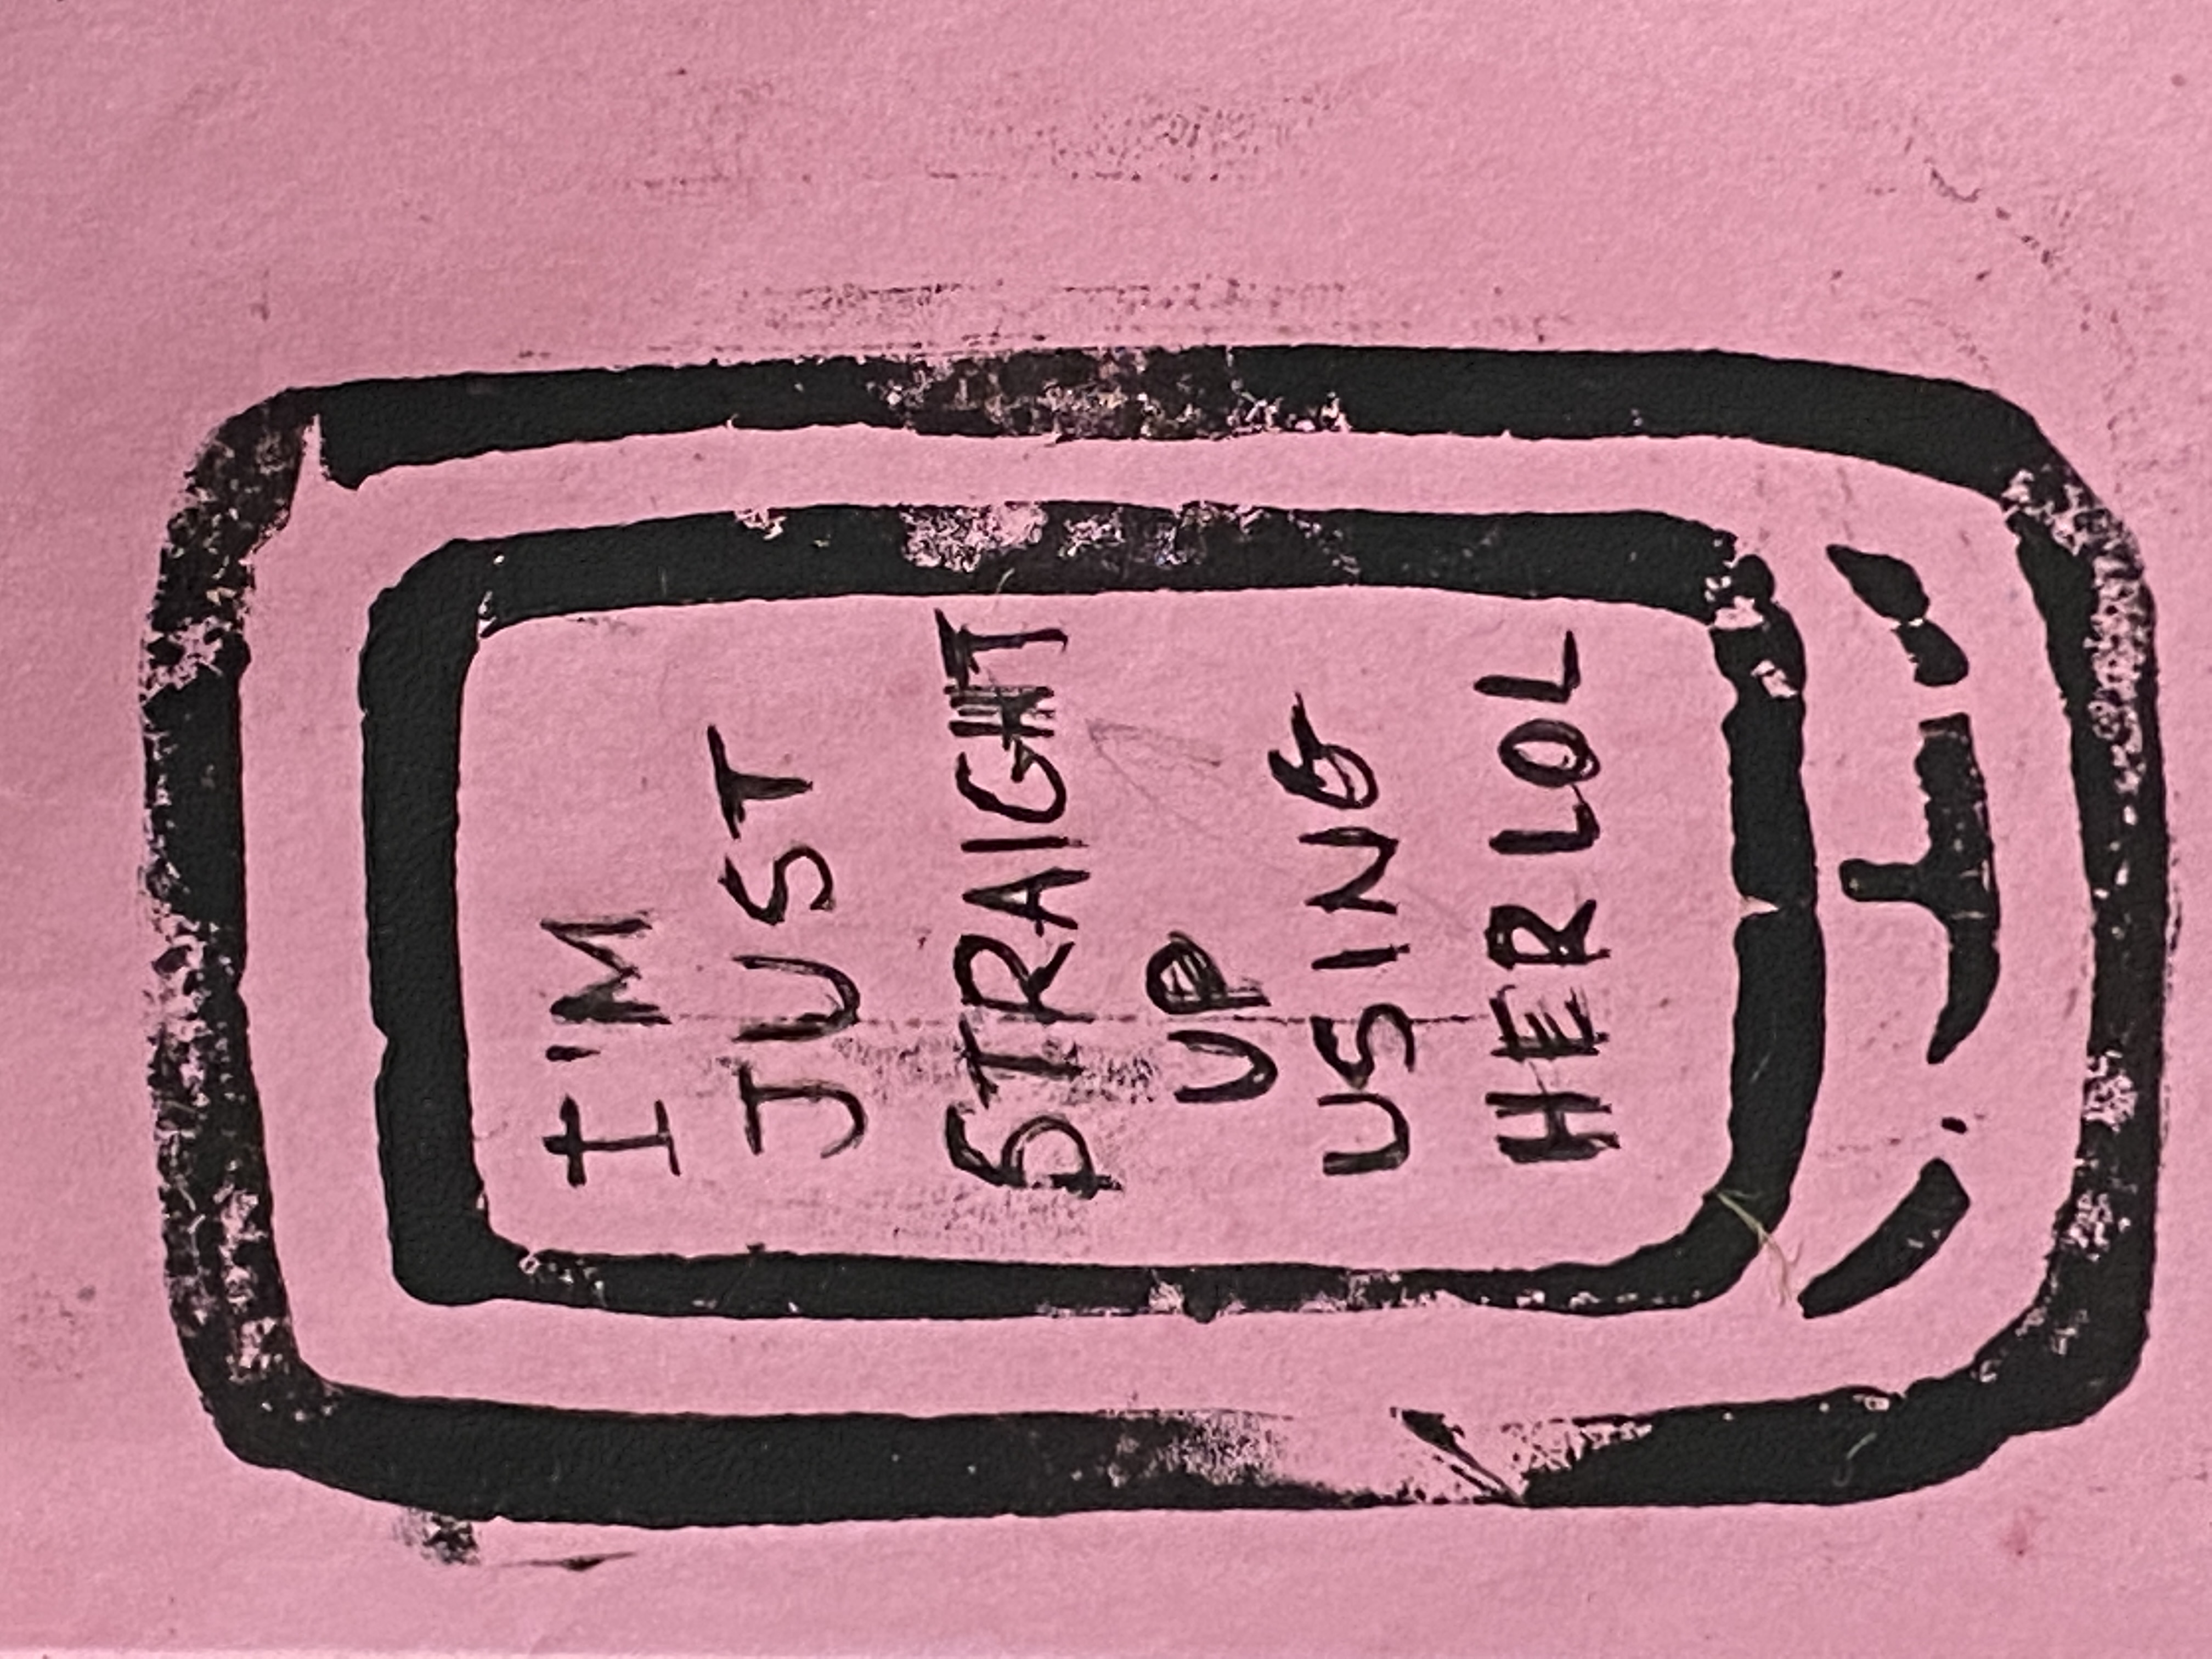 I'M
JUST
STRAIGHT
UP
USING
HER LOL